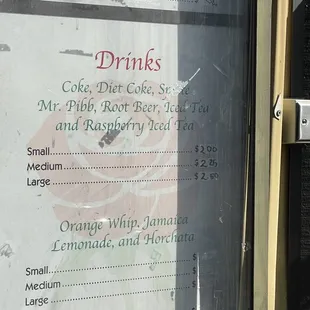 Drinks
Coke, Diet Coke, Sprite
Mr. Pibb, Root Beer, Iced Tea
and Raspberry Iced Tea
Small $2.00
Medium $2.25
Large $2.50
Orange Whip, Jamaica
Lemonade, and Horchata
Small $
Medium $
Large $